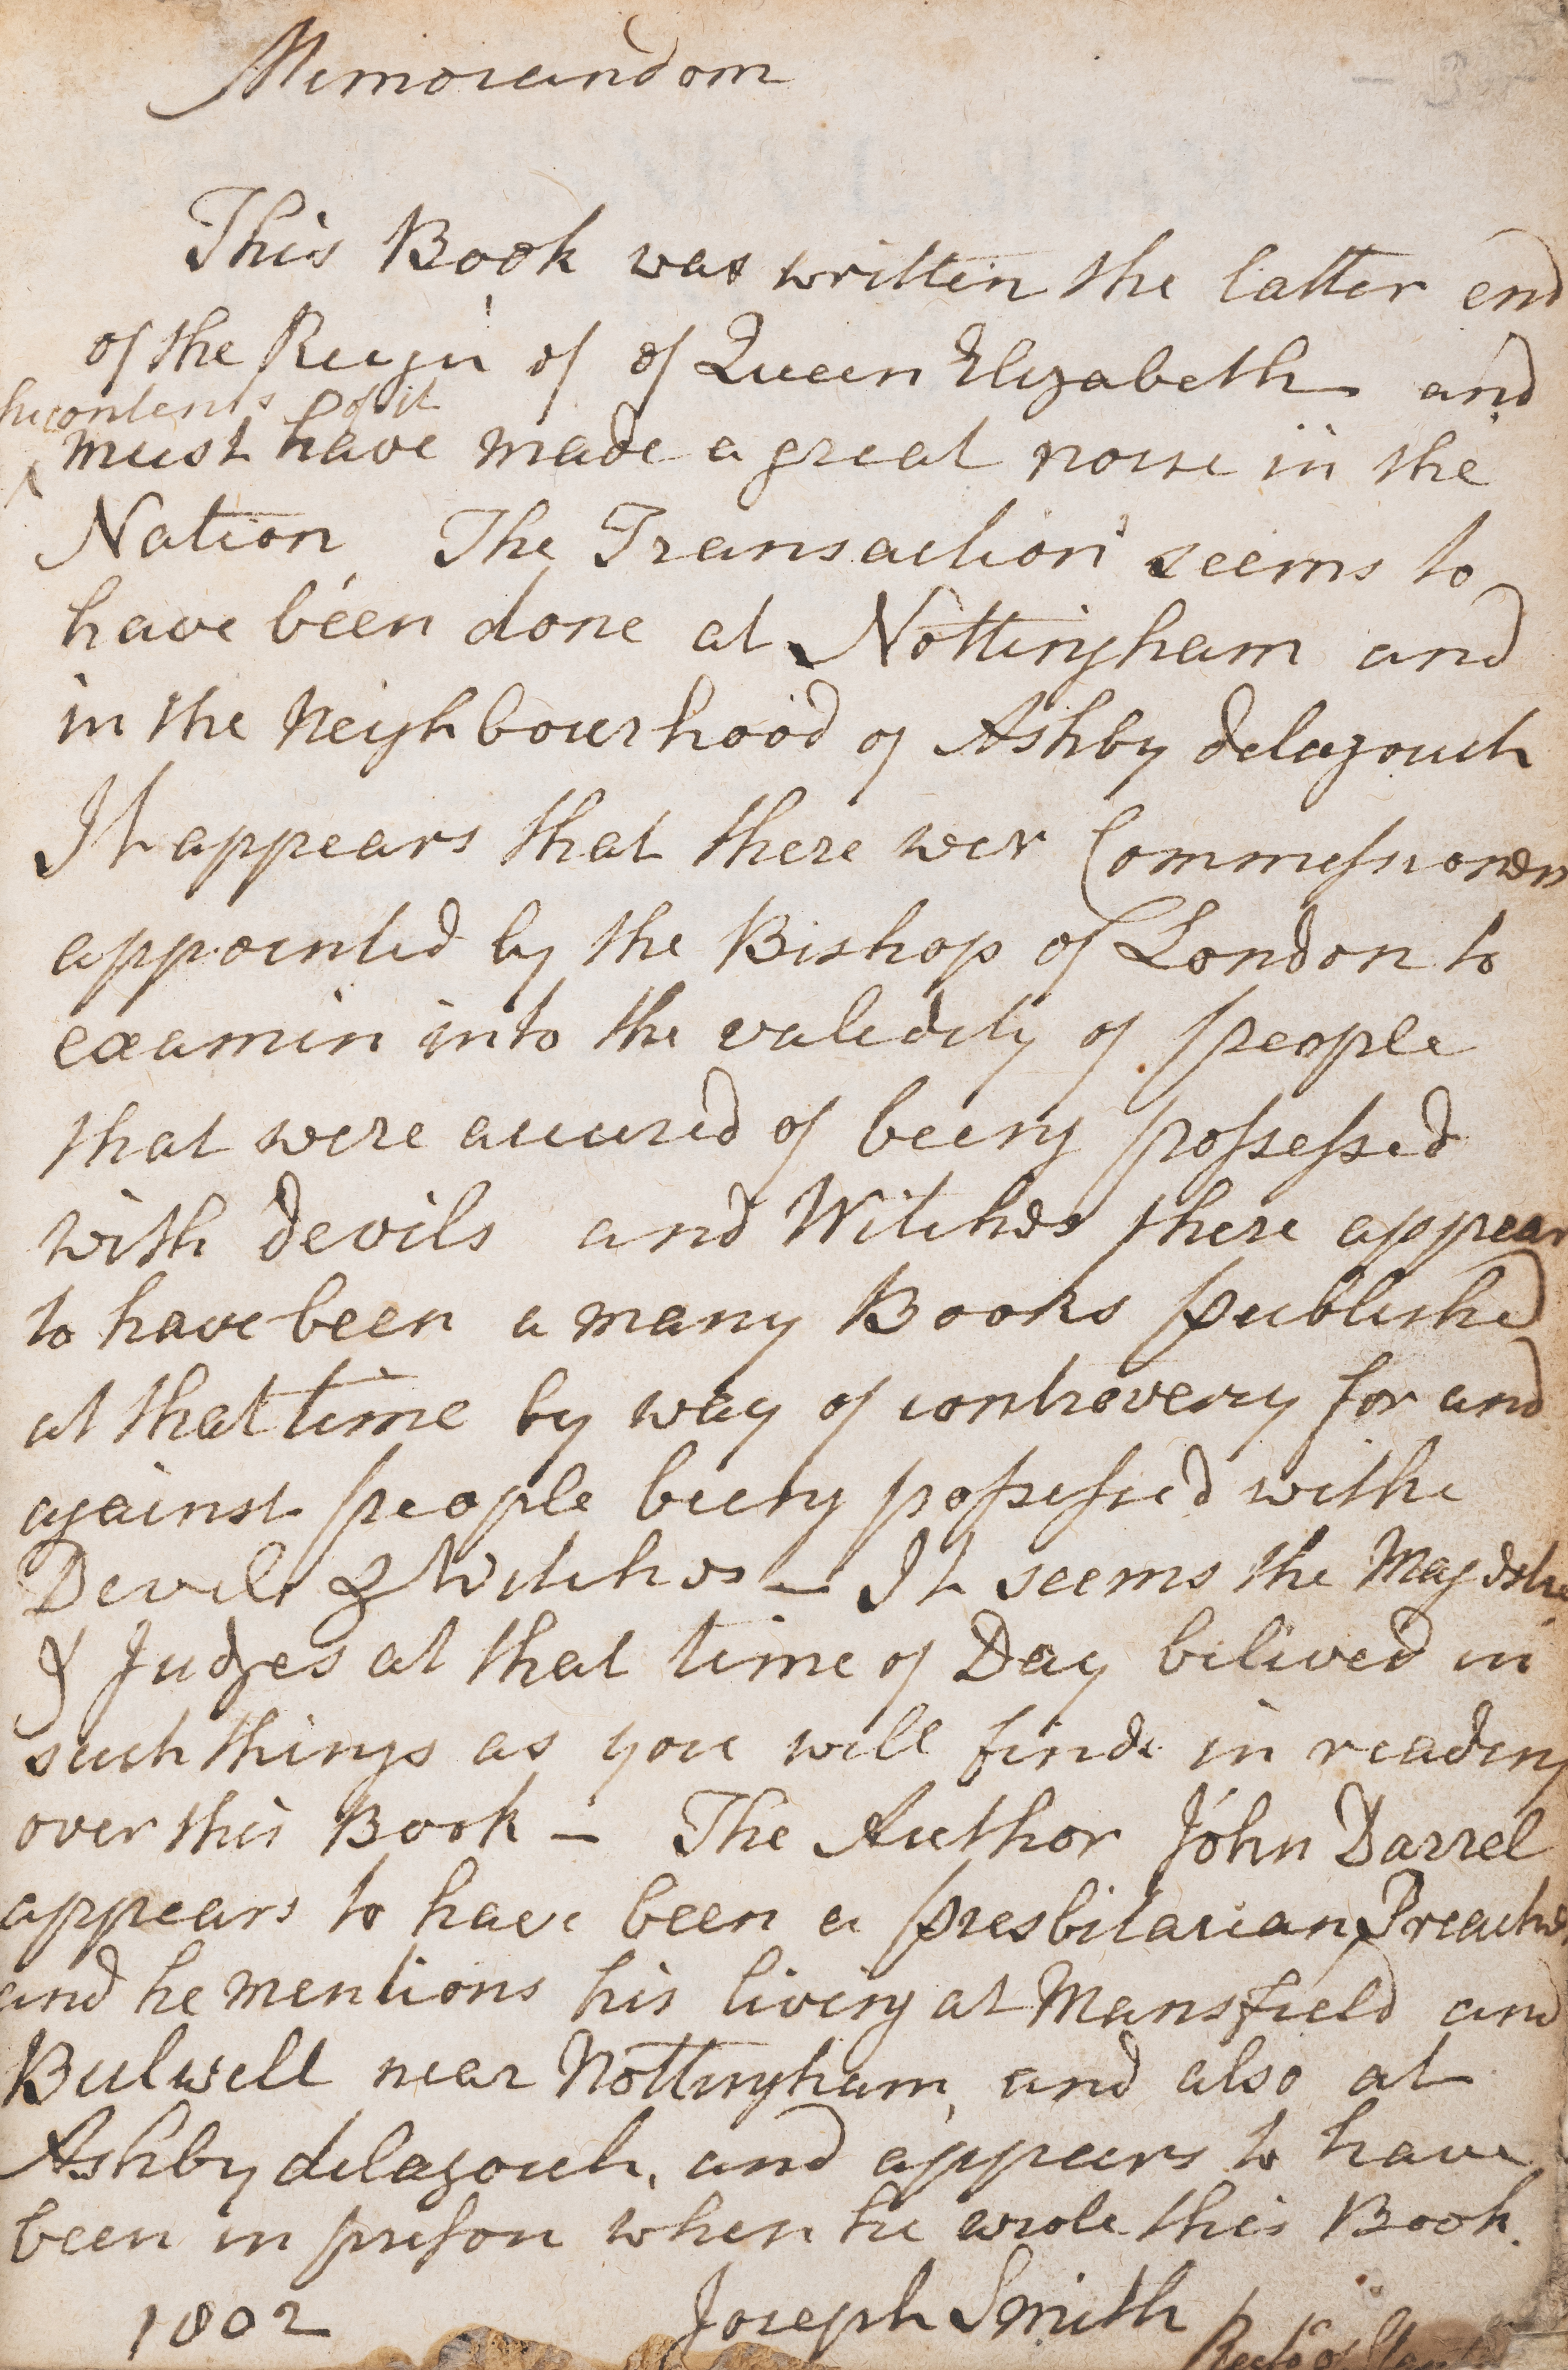 Memorandom
This Book was written the latter end
of the Reign of of Queen Elizabeth and
the contents of it
^ must have made a great noise in the
Nation The Transaction seems to
have been done at Nottingham and
in the Neighbourhood of Ashby delazouch
It appears that there wer Commessioners
appointed by the Bishop of London to
examin into the validity of people
that were accused of beeing possessed
with devils and Witches there appear
to have been a many Books published
at that time by way of controversy for and
against people beeing possessed withe
Devils & Witches – It seems the
& Judges at that time of Day belived in
such things as you will finde in reading
over this Book – The Author John Darrel
appears to have been a presbitarian Preacher
and he mentions his living at Mansfield and
Bulwell near Nottingham, and also at
Ashby delazouch, and appears to have
been in prison when he wrote this Book.
1802 Joseph Smith